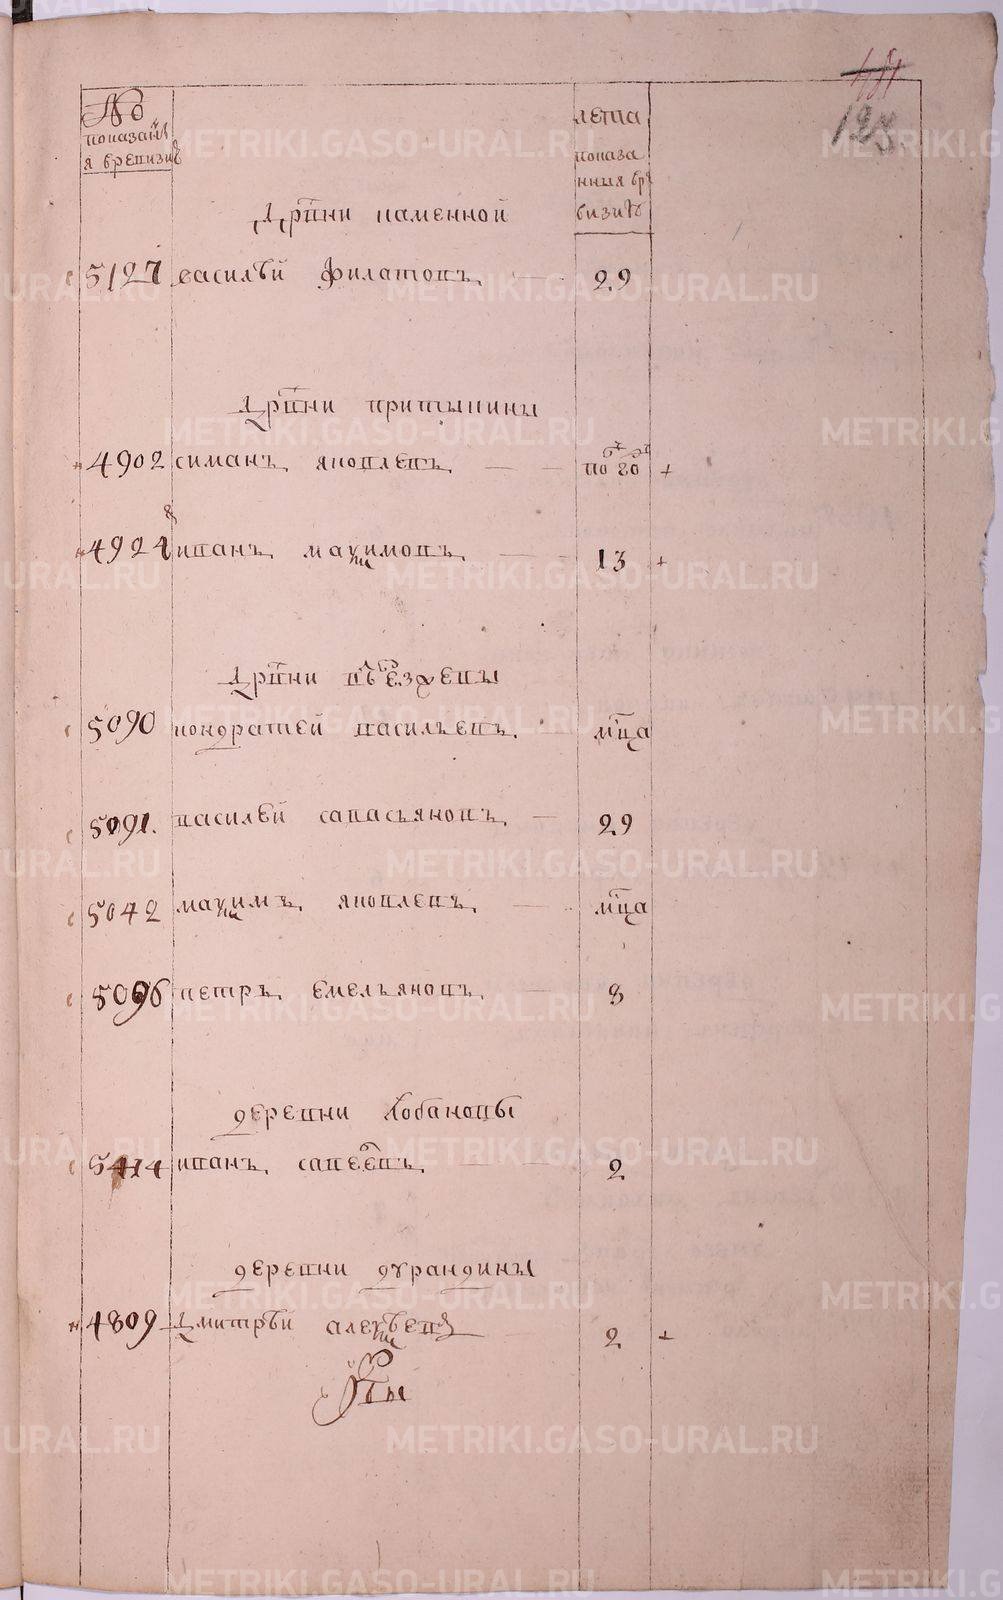 125
№
показан
я вревизи
лета
показа
нныя вре
визиѣ
Дрвни каменной
5127 василѣй филатовъ 29
Дрвни притыкины
4902 симанъ яковлевъ по 20 +
4924 иванъ максимовъ 13 +
Дрвни
5090 кондратей васильевъ мца
5091. василей савасьяновъ 29
5042 максимъ яковлевъ мца
5096 петръ емельяновъ 8
деревни лобановы
5414 иванъ савеевъ 2
деревни дурандины
4809 Дмитрѣй алексѣевъ 2 +
METRIKI.GASO-URAL.RU